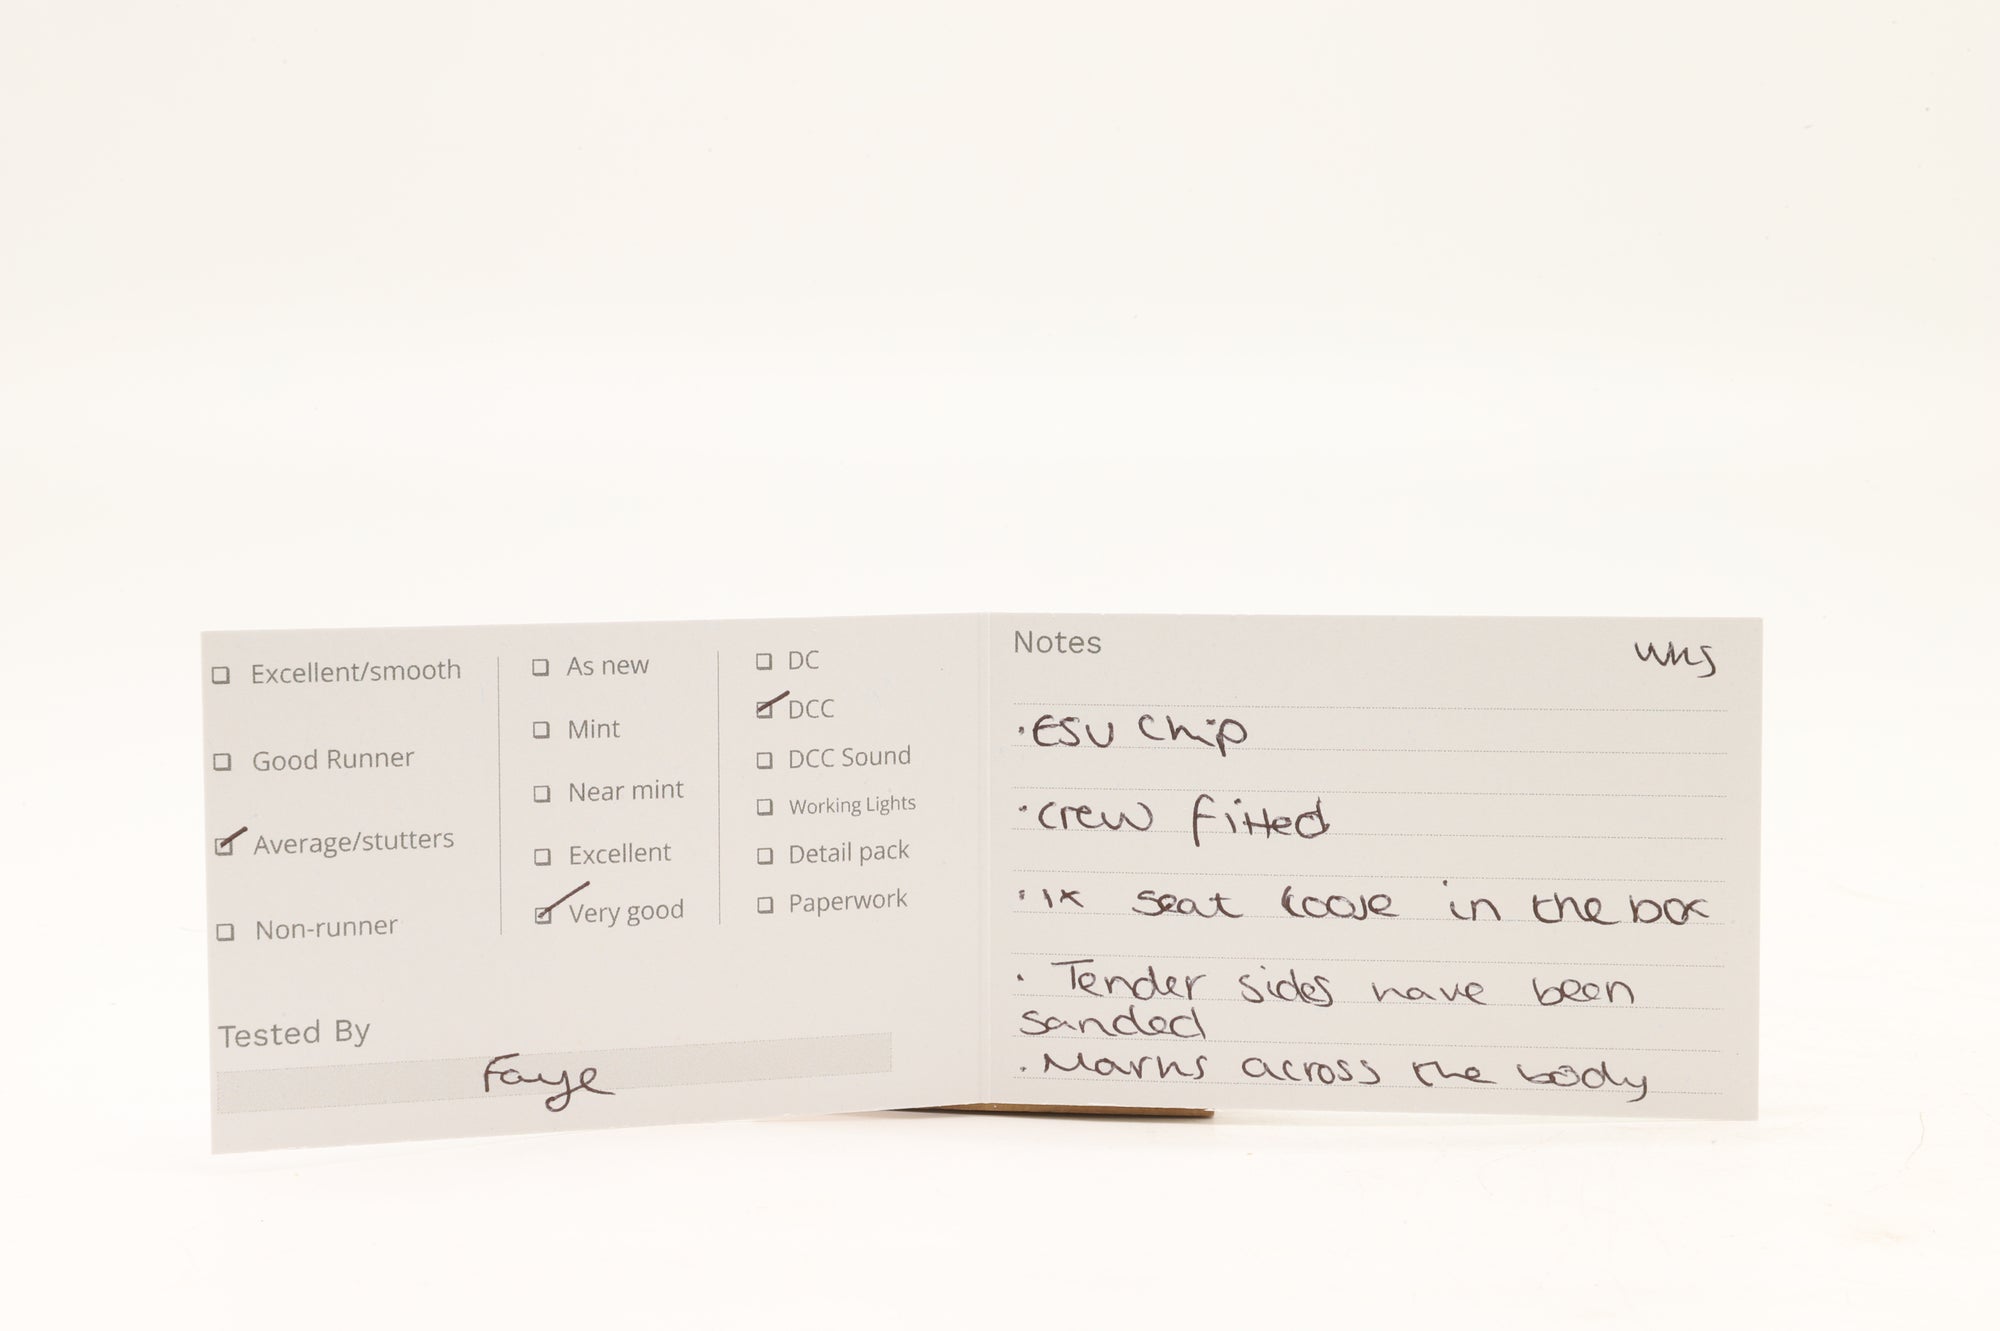 ☐ Excellent/smooth
☐ Good Runner
☑ Average/stutters
☐ Non-runner
☐ As new
☐ Mint
☐ Near mint
☐ Excellent
☑ Very good
☐ DC
☑ DCC
☐ DCC Sound
☐ Working Lights
☐ Detail pack
☐ Paperwork
Tested By
Faye
Notes
· ESU Chip
· crew fitted
· 1x seat loose in the box
· Tender sides have been
sanded
· Marks across the body